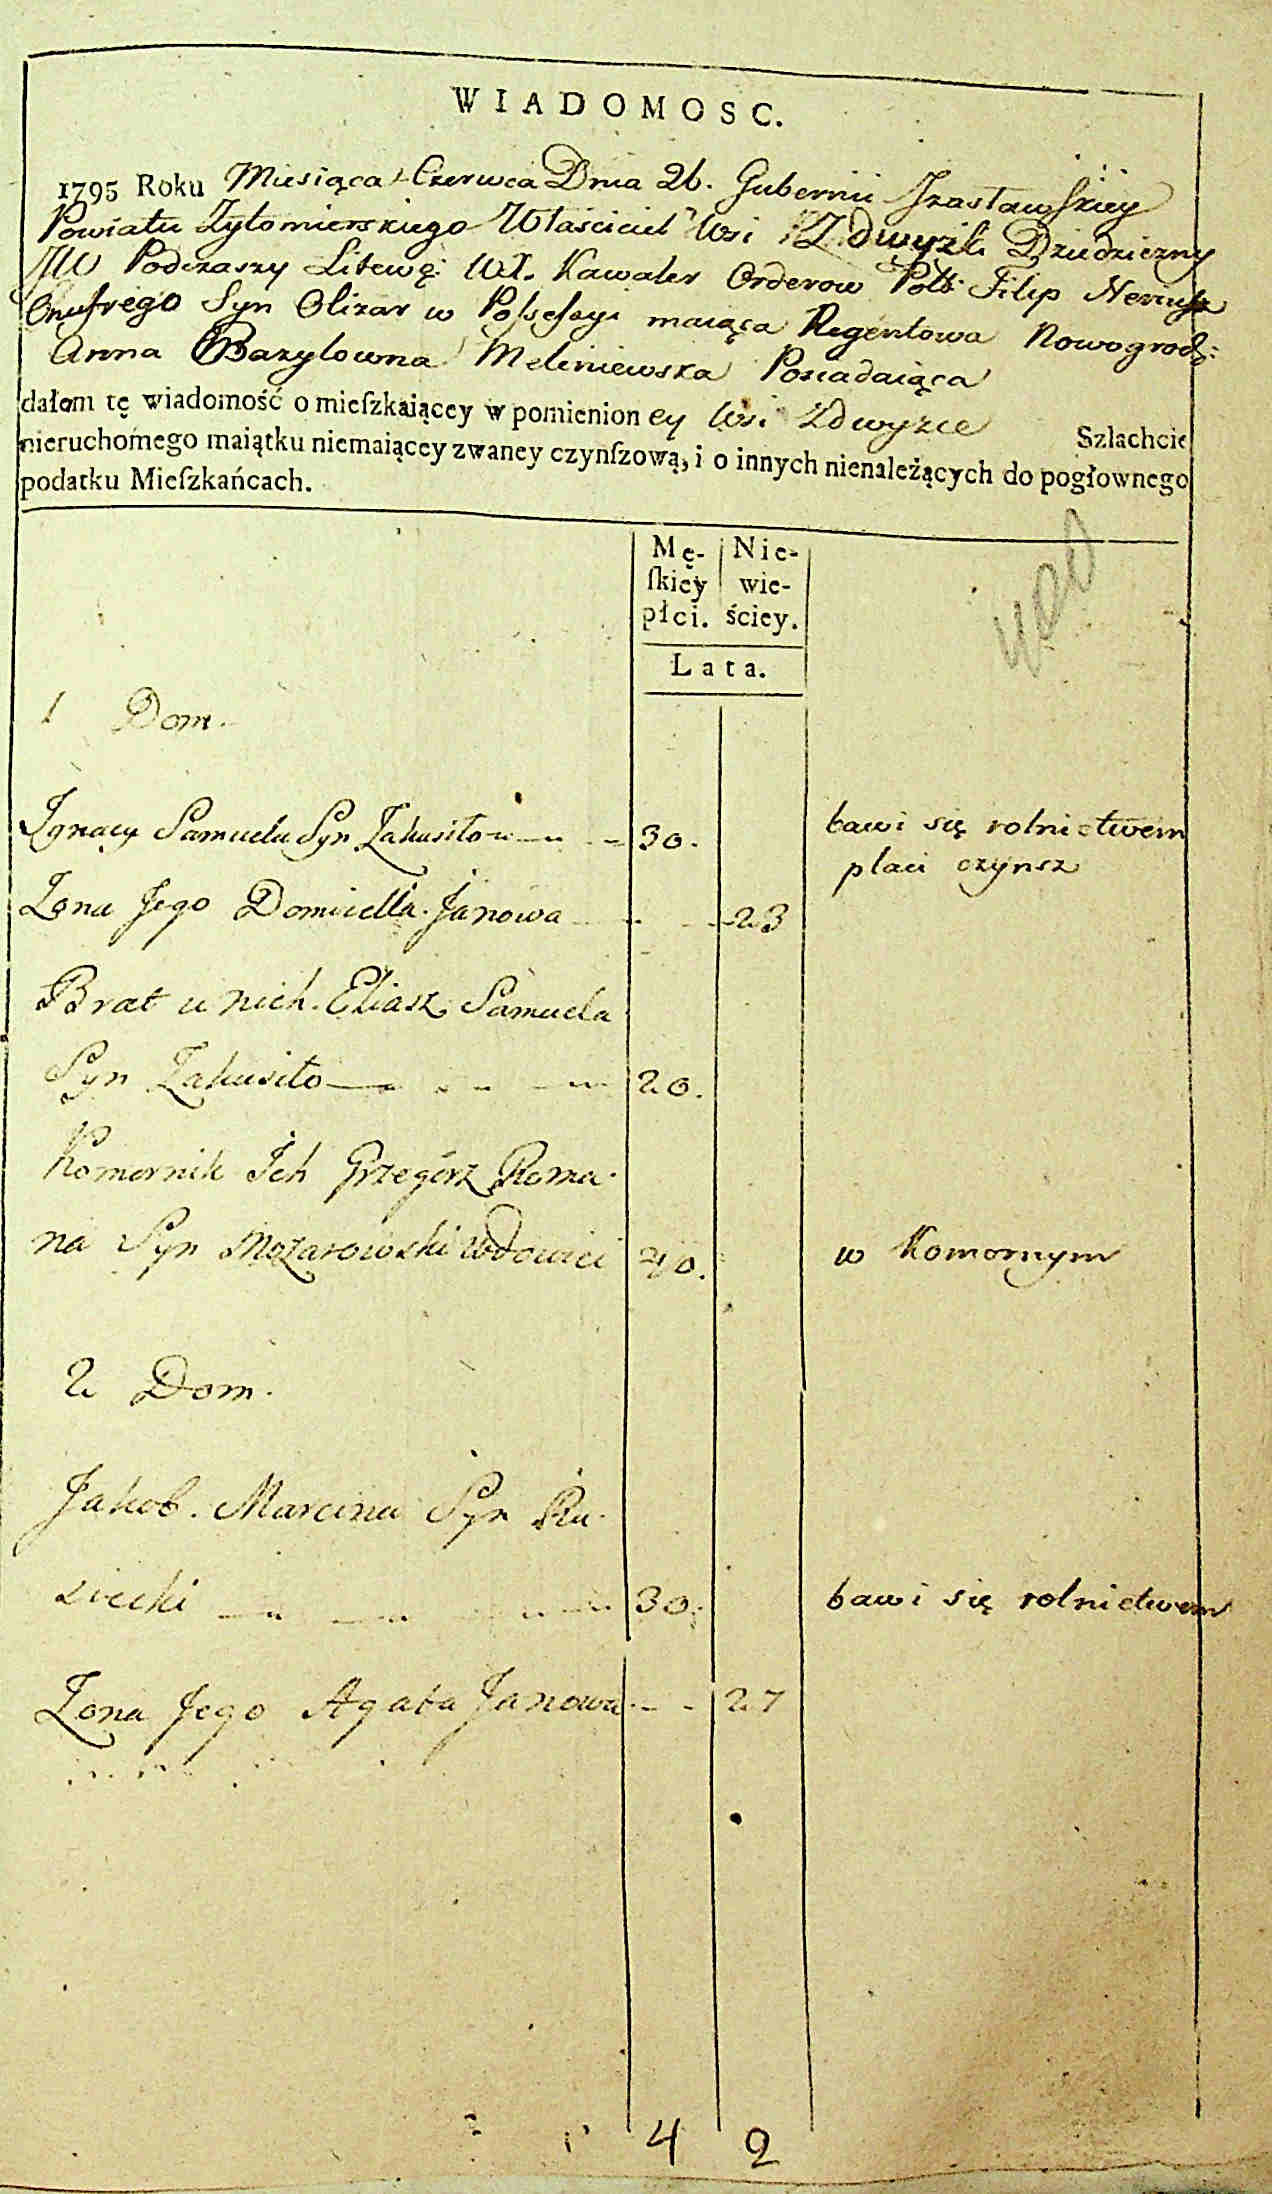 WIADOMOSC.
1795 Roku Miesiąca Czerwca Dnia 26. Gubernii Izasławskiey
Powiatu Zytomierskiego Właściciel Wsi Zdwyżk Dziedziczny
JW Podczaszy Litews: W. X. Kawaler Orderow Pols: Filip Nereusz
Onufrego Syn Olizar w Possessyi maiąca Regentowa Nowogrodz:
Anna Bazylowna Meleniewska Posiadaiąca
dałam tę wiadomość o mieſzkaiącey w pomienion ey Wsi Zdwyżce Szlachcie
nieruchomego maiątku niemaiącey zwaney czynſzową, i o innych nienależących do pogłownego
podatku Mieſzkańcach.
Mę- Nie-
ſkiey wie-
płci. ściey.
Lata.
1 Dom.
Ignacy Samuela Syn Zakusiło 30. bawi się rolnictwem
płaci czynsz
Zona Jego Domicella Janowa 23
Brat u nich Eliasz Samuela
Syn Zakusiło 20.
Komornik Ich Grzegorz Roma
na Syn Możarowski Wdowiec 40. w Komornym
2 Dom.
Jakob Marcina Syn Ru
siecki 30. bawi się rolnictwem
Zona Jego Agata Janowa 27
4 2